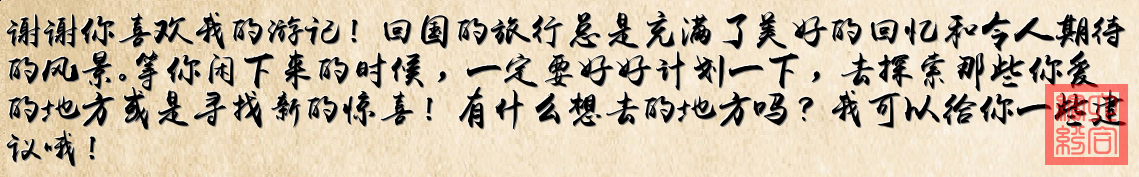 谢谢你喜欢我的游记！回国的旅行总是充满了美好的回忆和令人期待
的风景。等你闲下来的时候，一定要好好计划一下，去探索那些你爱
的地方或是寻找新的惊喜！有什么想去的地方吗？我可以给你一些建
议哦！